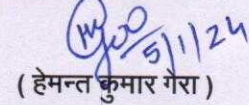 5/1/24
( हेमन्त कुमार गैरा )